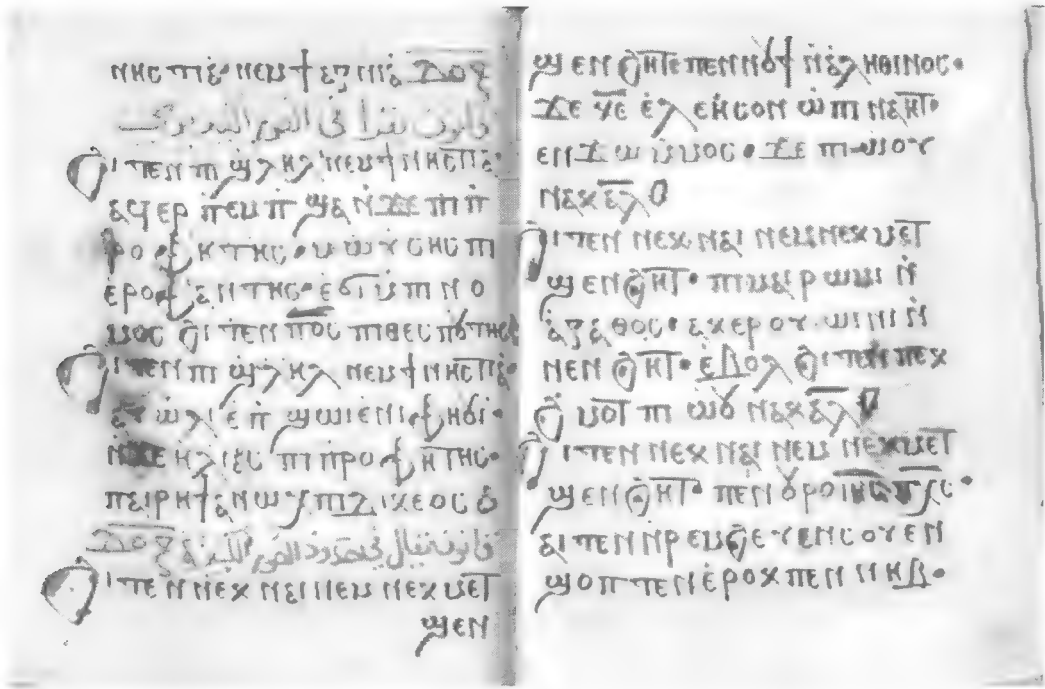 ⲛⲏⲥⲧⲓⲁ̀· ⲛⲉⲙϯ ⲁⲅⲛⲓⲁ̀ ⲇⲟⲝ
قانون يقرا في الصوم الكبير
ϩⲓⲧⲉⲛ ⲡⲓ ϣⲗⲏⲗ ⲛⲉⲙϯ ⲛⲏⲥⲧⲓⲁ̀·
ⲁϥⲉⲣ ⲡ̀ⲉⲙⲡ ϣⲁ ⲛ̀ϫⲉ ⲡⲓⲡ̀
ⲣⲟⲫⲏⲧⲏⲥ· ⲙⲱⲩⲥⲏⲥ ⲡⲓ
ⲉ̀ⲣⲟⲫⲁⲛⲧⲏⲥ· ⲉ̀ϭⲓ ⲙ̀ⲡⲓ ⲛⲟ
ⲙⲟⲥ ϩⲓⲧⲉⲛ ⲡ̅ⲟ̅ⲥ̅ ⲡⲓⲑⲉⲥⲡⲟⲧⲏⲥ
ϩⲓⲧⲉⲛ ⲡⲓ ϣⲗⲏⲗ ⲛⲉⲙϯ ⲛⲏⲥⲧⲓⲁ̀·
ⲁϥ ⲱ̀ⲗⲓ ⲉ̀ⲡ̀ ϣⲱⲓ ⲉⲛⲓⲫⲏⲟ̀ⲓ·
ⲛ̀ϫⲉ ⲏ̀ⲗⲓⲁⲥ ⲡⲓⲡ̀ⲣⲟⲫⲏⲧⲏⲥ·
ⲡⲁⲓⲣⲏϯ ⲁⲛⲱⲭ ⲡⲓⲇⲓⲕⲉⲟⲥ ⲟ̅
قانون يقال في حدود الصوم الكبير ⲇⲟⲝ
ϩⲓⲧⲉⲛ ⲛⲉⲕ ⲛⲁⲓ ⲛⲉⲙ ⲛⲉⲕ ⲙⲉⲧ
ϣⲉⲛ
ϣⲉⲛ ϩⲏⲧ ⲡⲉⲛⲛⲟⲩϯ ⲛ̀ⲁⲗⲏⲑⲓⲛⲟⲥ·
ϫⲉ ϥⲉ ⲁ̀ⲗ ⲉⲏⲥⲟⲛ ⲱ̀ⲡⲓ ⲛⲁⲏⲧ·
ⲉⲛϫⲱ ⲙ̀ⲙⲟⲥ· ϫⲉ ⲡⲓⲱ̀ⲟⲩ
ⲛⲁⲕ ⲁ̅ⲗ̅
ϩⲓⲧⲉⲛ ⲛⲉⲕ ⲛⲁⲓ ⲛⲉⲙ ⲛⲉⲕ ⲙⲉⲧ
ϣⲉⲛ ϩⲏⲧ· ⲡⲓⲙⲁⲓⲣⲱⲙⲓ ⲛ̀
ⲁ̀ⲅⲁⲑⲟⲥ· ⲁⲕⲉⲣ ⲟⲩⲱⲓⲛⲓ ⲛ̀
ⲛⲉⲛ ϩⲏⲧ· ⲉ̀ⲃⲟⲗ ϩⲓⲧⲉⲛ ⲡⲉⲕ
ϩ̀ⲙⲟⲧ ⲡⲓ ⲱⲟⲩ ⲛⲁⲕ ⲁ̅ⲗ̅
ϩⲓⲧⲉⲛ ⲛⲉⲕ ⲛⲁⲓ ⲛⲉⲙ ⲛⲉⲕ ⲙⲉⲧ
ϣⲉⲛ ϩⲏⲧ· ⲡⲉⲛ ⲟⲩⲣⲟ ⲓ̅ⲏ̅ⲥ̅ ⲡ̅ⲭ̅ⲥ̅·
ⲁⲓⲧⲉⲛ ⲛ̀ⲣⲉⲙϩⲉ ⲩⲉⲛⲥⲟⲩⲉⲛ
ϣⲟⲡⲧⲉⲛ ⲉ̀ⲣⲟⲕ ⲡⲉⲛ ⲛⲏⲃ·